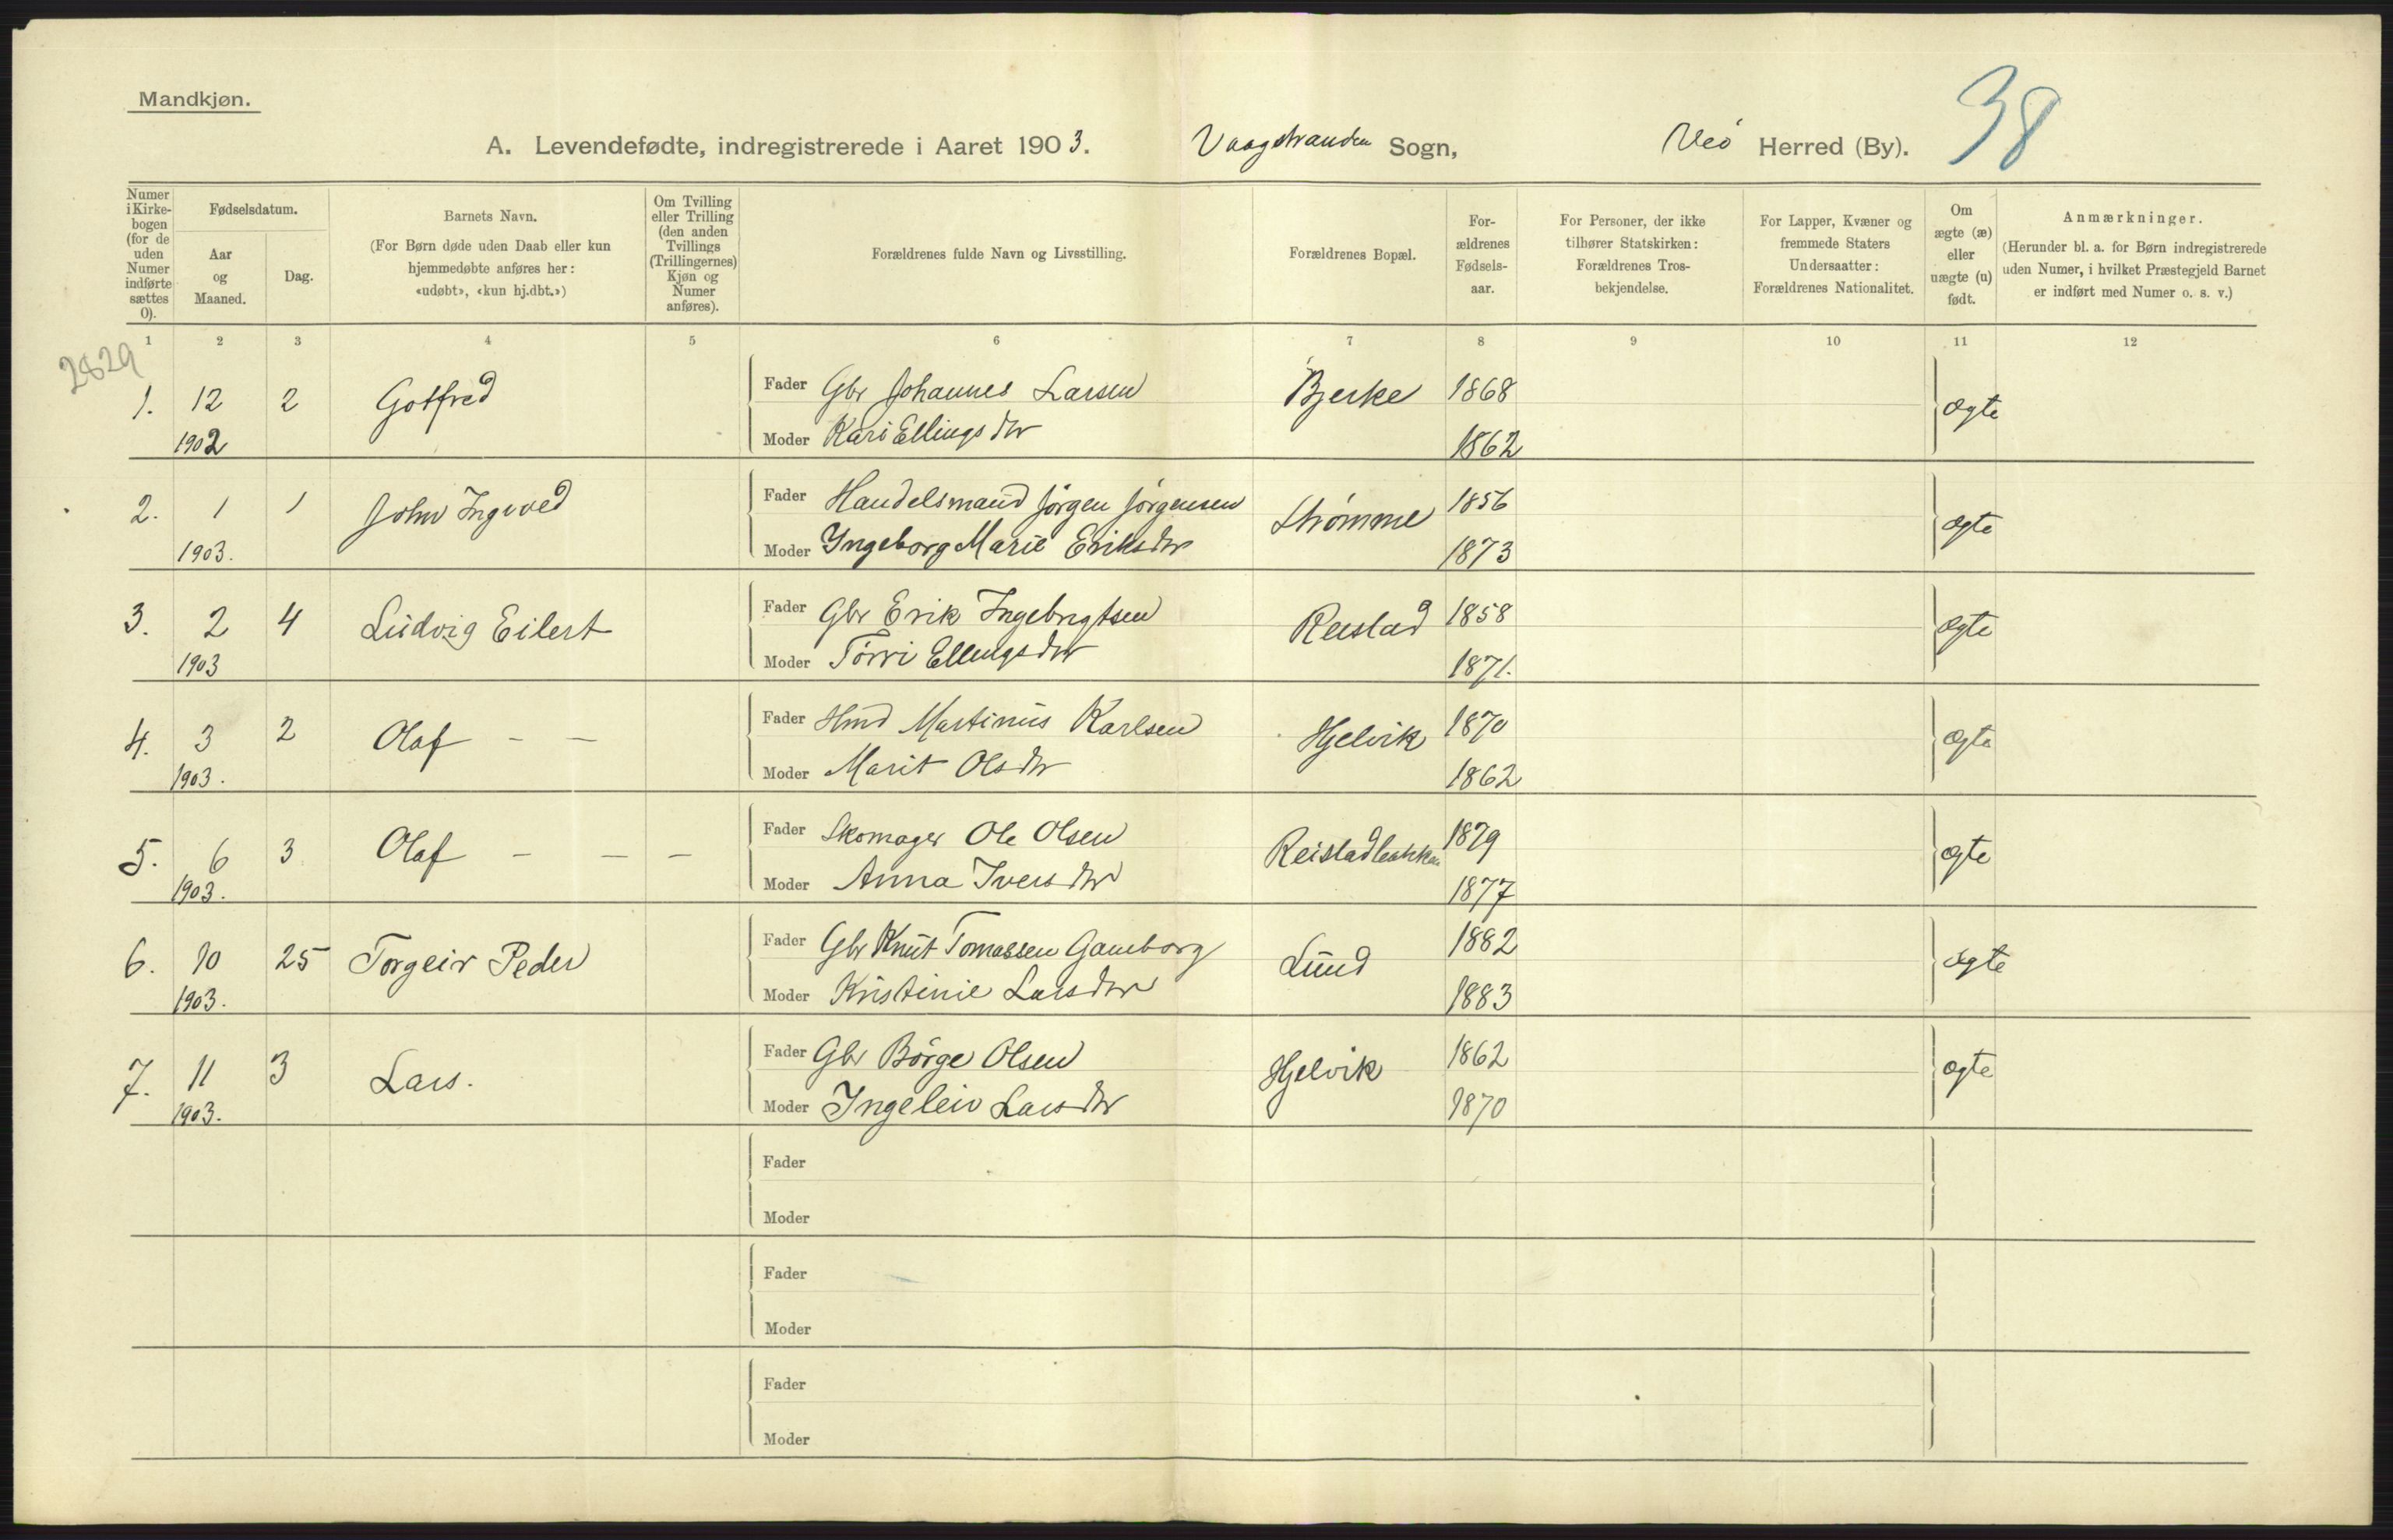 Mandkjøn.
38
A. Levendefødte, indregistrerede i Aaret 1903. Vaagstranden Sogn, Veö Herred (By).
Numer i Kirkebogen (for de uden Numer indførte sættes 0).
Fødselsdatum.
Aar og Maaned.
Dag.
Barnets Navn.
(For Børn døde uden Daab eller kun hjemmedøbte anføres her: «udøbt», «kun hj.dbt.»)
Om Tvilling eller Trilling (den anden Tvillings (Trillingernes) Kjøn og Numer anføres).
Forældrenes fulde Navn og Livsstilling.
Forældrenes Bopæl.
Forældrenes Fødselsaar.
For Personer, der ikke tilhører Statskirken: Forældrenes Trosbekjendelse.
For Lapper, Kvæner og fremmede Staters Undersaatter: Forældrenes Nationalitet.
Om ægte (æ) eller uægte (u) født.
Anmærkninger.
(Herunder bl. a. for Børn indregistrerede uden Numer, i hvilket Præstegjeld Barnet er indført med Numer o. s. v.)
1 2 3 4 5 6 7 8 9 10 11 12
2829
1. 12 2 Gotfred Fader Gbr Johannes Larsen Bjerke 1868 ægte
1902 Moder Kari Ellingsdtr 1862
2. 1 1 John Ingvod Fader Handelsmand Jörgen Jörgensen Strömme 1856 ægte
1903. Moder Ingeborg Marie Eriksdtr 1873
3. 2 4 Ludvig Eilert Fader Gbr Erik Ingebrigtsen Reistad 1858 ægte
1903 Moder Törri Ellingsdtr 1871.
4. 3 2 Olaf - - Fader Hmd Martinus Karlsen Hjelvik 1870 ægte
1903. Moder Marit Olsdtr 1862
5. 6 3 Olaf - - - Fader Skomager Ole Olsen Reistadbakken 1879 ægte
1903. Moder Anna Iversdtr 1877
6. 10 25 Torgeir Peder Fader Gbr Knut Tomassen Gamborg Lund 1882 ægte
1903. Moder Kristinie Larsdtr 1883
7. 11 3 Lars. Fader Gbr Börge Olsen Hjelvik 1862 ægte
1903. Moder Ingeleiv Larsdtr 1870
Fader
Moder
Fader
Moder
Fader
Moder